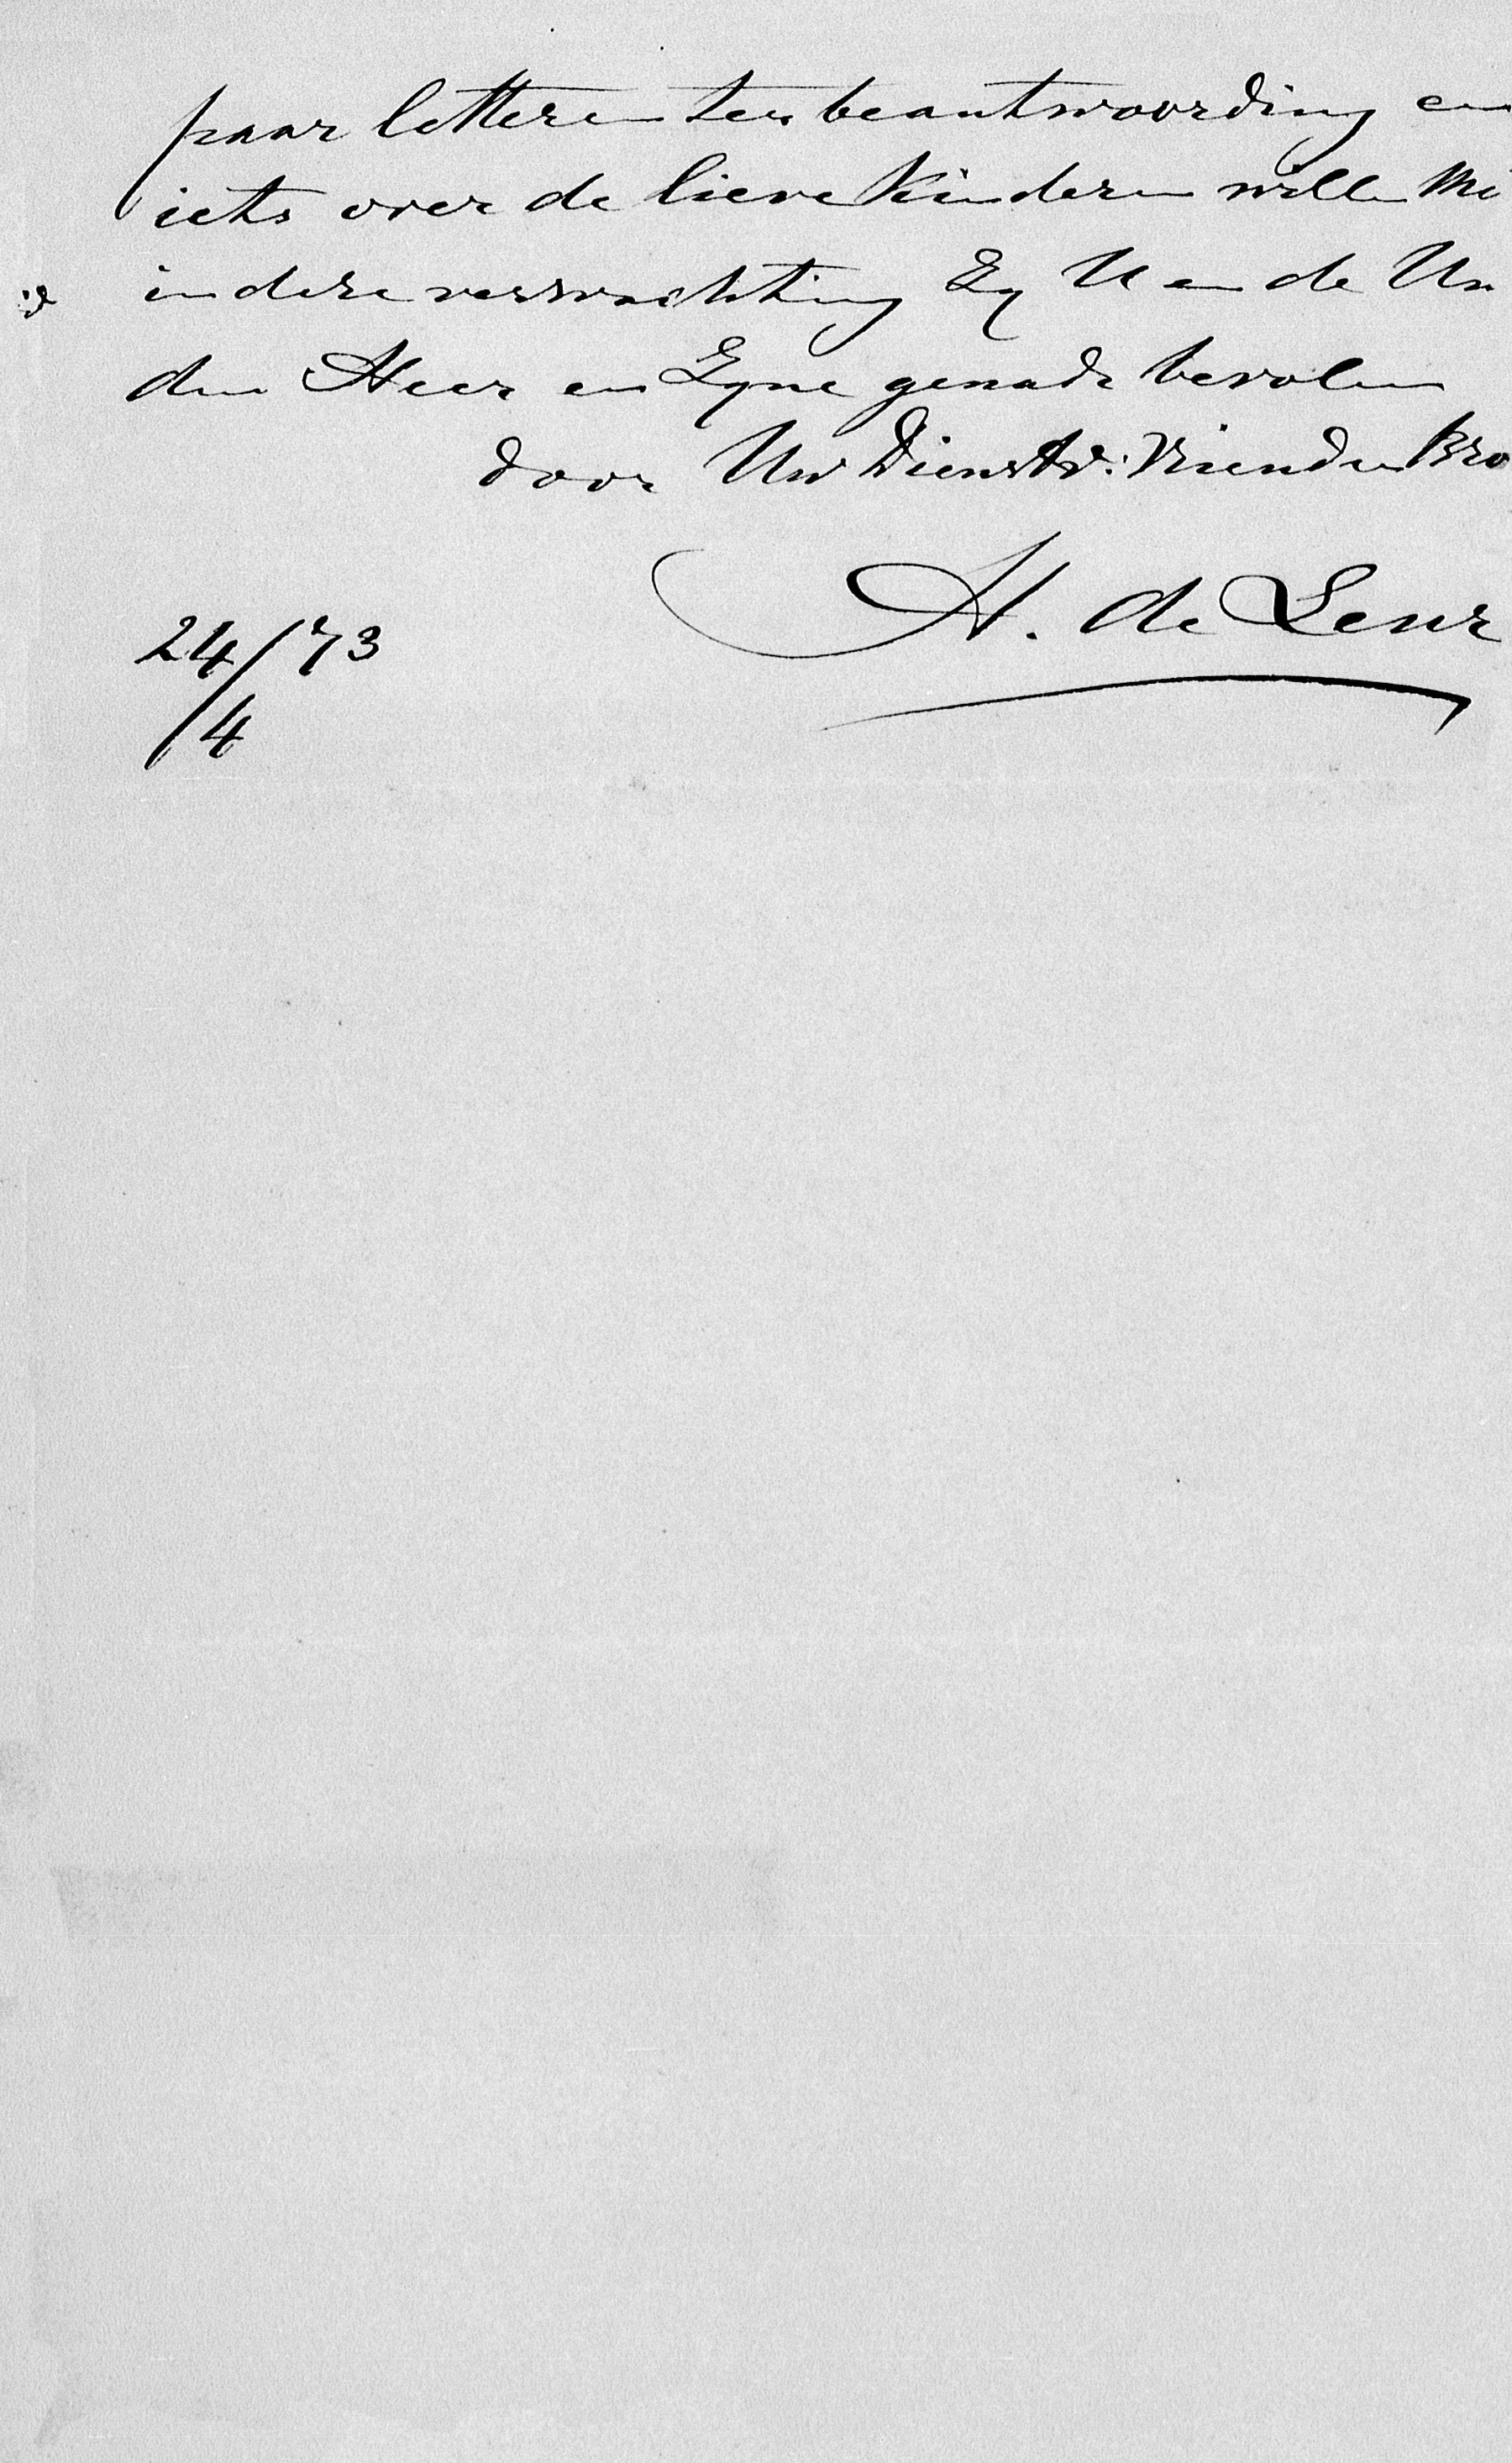 paar letteren ter beantwoording en
iets over de lieve Kinderen willen
in deze verwachting Zy U en de
den Heer en Zyne genade bevolen
door Uw Dienstv: Vriend en Bro
H. de Leur
24/73
/4